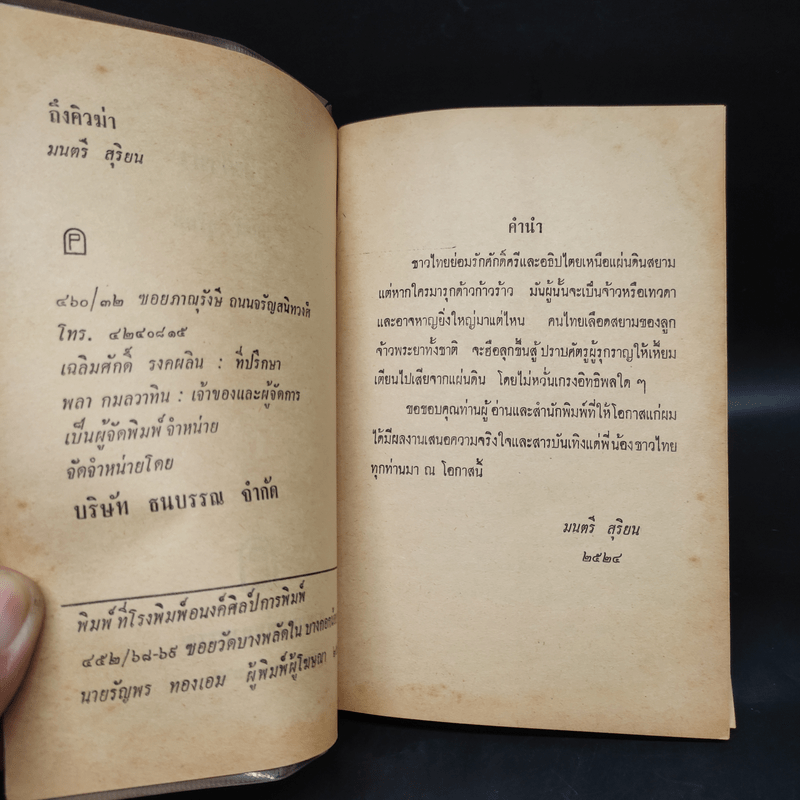 ถึงคิวฆ่า
มนตรี สุริยน
P
๔๖๐/๓๒ ซอยภาณุรังษี ถนนจรัญสนิทวงศ์
โทร. ๔๒๔๐๘๑๕
เฉลิมศักดิ์ รงคผลิน : ที่ปรึกษา
พลา กมลวาทิน : เจ้าของและผู้จัดการ
เป็นผู้จัดพิมพ์จำหน่าย
จัดจำหน่ายโดย
บริษัท ธนบรรณ จำกัด
พิมพ์ที่โรงพิมพ์อนงค์ศิลป์การพิมพ์
๔๕๒/๖๘-๖๙ ซอยวัดบางพลัดใน
นายรัญพร ทองเอม ผู้พิมพ์ผู้โฆษณา
คำนำ
ชาวไทยย่อมรักศักดิ์ศรีและอธิปไตยเหนือแผ่นดินสยาม
แต่หากใครมารุกด้าวก้าวร้าว มันผู้นั้นจะเป็นจ้าวหรือเทวดา
และอาจหาญยิ่งใหญ่มาแต่ไหน คนไทยเลือดสยามของลูก
จ้าวพระยาทั้งชาติ จะฮือลุกขึ้นสู้ ปราบศัตรูผู้รุกราญให้เหี้ยม
เตียนไปเสียจากแผ่นดิน โดยไม่หวั่นเกรงอิทธิพลใด ๆ
ขอขอบคุณท่านผู้อ่านและสำนักพิมพ์ที่ให้โอกาสแก่ผม
ได้มีผลงานเสนอความจริงใจและสารบันเทิงแด่พี่น้องชาวไทย
ทุกท่านมา ณ โอกาสนี้
มนตรี สุริยน
๒๕๒๔